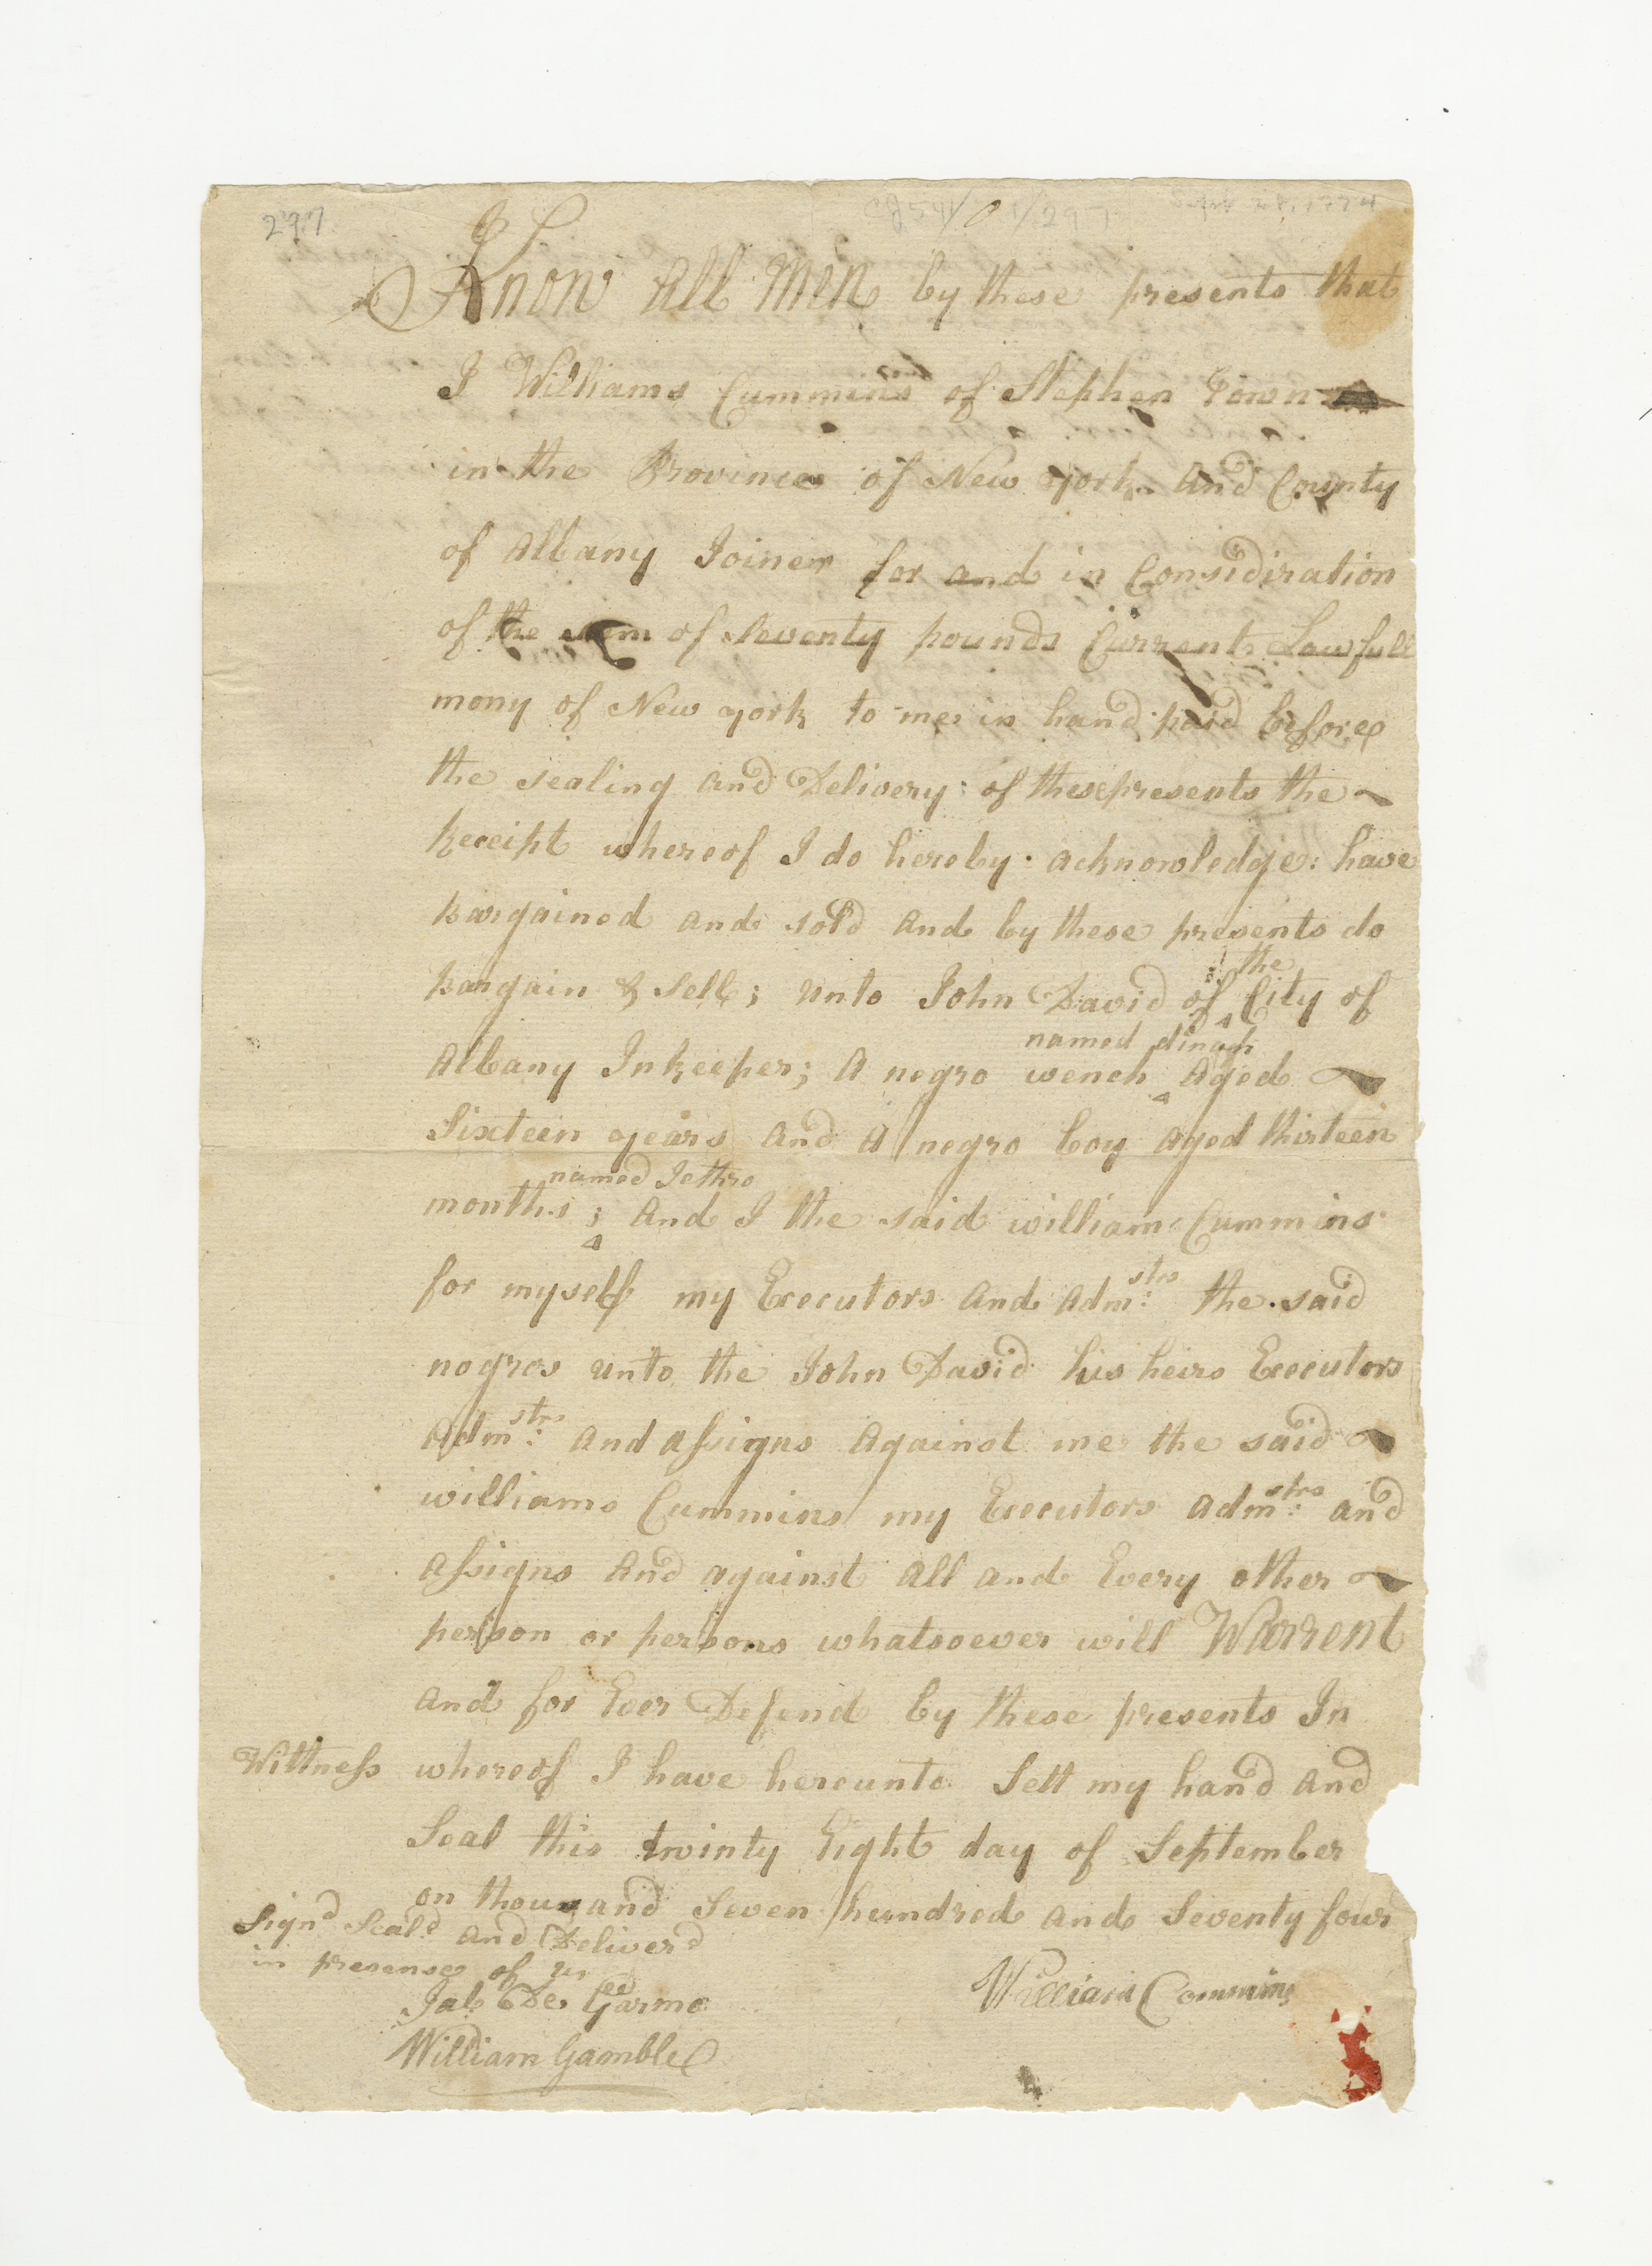 297
Know All Men by these presents that
I Williams Cummins of Stephen Town
in the Province of New york And County
of Albany Joiner for and in Considiration
of the sum of Seventy pounds Current Lawfull
mony of New york to me in hand paid before
the sealing And Delivery: of these presents the
Receipt whereof I do hereby acknowledge: have
bargained and sold And by these presents do
the
bargain & Sell; unto John David of City of
named dinah
Albany Inkeeper; A negro wench Aged
Sixteen years And A negro boy aged thirteen
named Jethro
months; And I the said william Cummins
for myself my Executors And Admstrs: the said
negros unto the John David his heirs Executors
Admstrs: And assigns Against me the said
williams Cummins my Executors Admstrs: And
assigns And against All and Every other
person or persons whatsoever will Warrent
And for Ever Defend by these presents In
Wittness whereof I have hereunto Sett my hand And
Seal this twinty Eight day of September
on thousand Seven hundred and Seventy four
Signd Seald And Deliverd
in presense of us
William Commins
Jab De Garmo
William Gamble